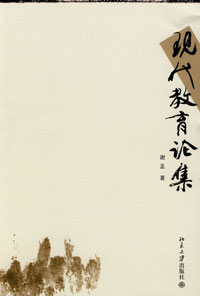 现代教育论集
谢孟 著
北京大学出版社